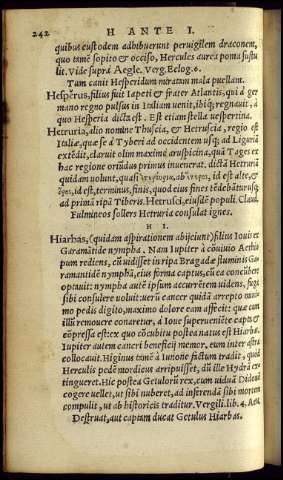 242 H ANTE I.
quibus custodem adhibuerunt peruigilem draconem,
quo tamē sopito & occiso, Hercules aurea poma sustu
lit. Vide suprà Aegle. Verg. Eclog. 6.
Tum canit Hesperidum miratam mala puellam.
Hesperus, filius fuit Iapeti & frater Atlantis, qui à ger
mano regno pulsus in Italiam venit, ibiq; regnauit, à
quo Hesperia dicta est. Est etiam stella vespertina.
Hetruria, alio nomine Thuscia, & Hetruscia, regio est
Italiæ, quæ se à Tyberi ad occidentem vsq; ad Liguriā
extēdit, claruit olim maximè aruspicina, quā Tages ex
hac regione oriūdus primus inuenerat. dictā Hetruriā
quidam volunt, quasi ab id est alter, &
id est, terminus, finis, quod eius fines tēdebāt vrsq;
ad primā ripā Tiberis. Hetrusci, eiusdē populi. Claud.
Fulmineos sollers Hetruria consulat ignes.
H I.
Hiarbas, (quidam aspirationem abijciunt) filius Iouis et
Garamātide nympha. Nam Iupiter à cōuiuio Aethio
pum rediens, cū vidisset in ripa Bragadæ fluminis Ga-
ramantidē nymphā, eius forma captus, cū ea concūbere
optauit: nympha autē ipsum accurrētem uidens, fuga
sibi consulere uoluit: uerū cancer quidā arrepto mini-
mo pedis digito, maximo dolore eam affecit: quæ cum
illū remouere conaretur, à Ioue superueniēte capta &
cōpressa est: ex quo cōcubitu postea natus est Hiarbas.
Iupiter autem cancri beneficij memor, eum inter astra
collocauit. Higinus tamē à Iunone factum tradit, quod
Herculis pedē mordicus arripuisset, dū ille Hydrā ex-
tingueret. Hic postea Getulorū rex, cum viduā Didonē
cogere vellet, ut sibi nuberet, ad inferendā sibi mortem
compulit, ut ab historicis traditur. Vergili. lib. 4. Aen.
Destruat, aut captam ducat Getulus Hiarbas.